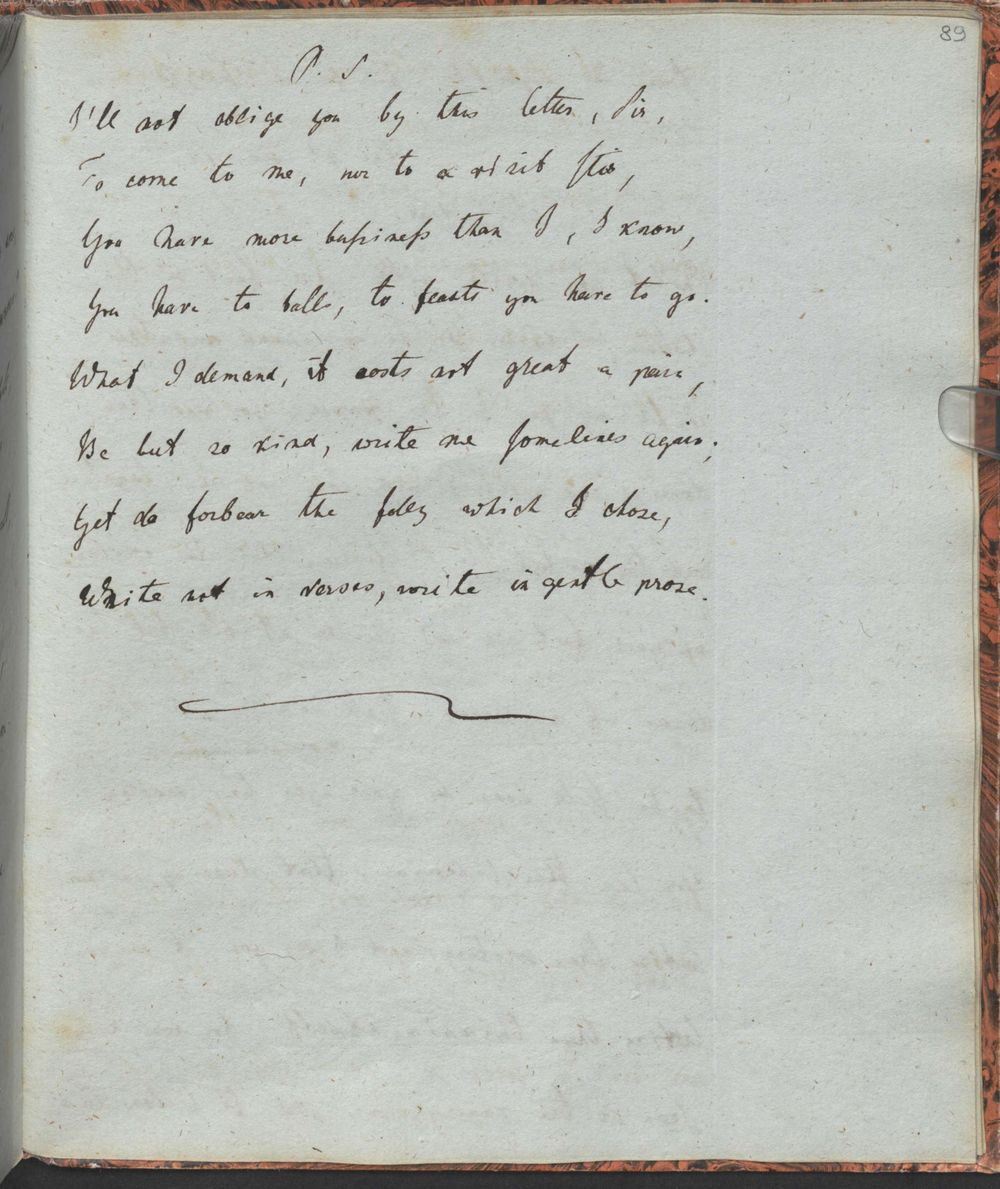 89
P. S.
I'll not oblige you by this letter, Sir,
To come to me, nor to a visit stir,
You have more bussiness than I, I know,
You have to balls, to feasts you have to go.
What I demand, it costs not great a pain,
Be but so kind, write me some lines again;
Yet do forbear the folly which I chose,
Write not in verses, write in gentle prose.